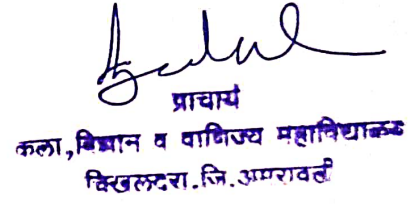 प्राचार्य
कला, विज्ञान व वाणिज्य महाविद्यालय
चिखलदरा. जि. अमरावती